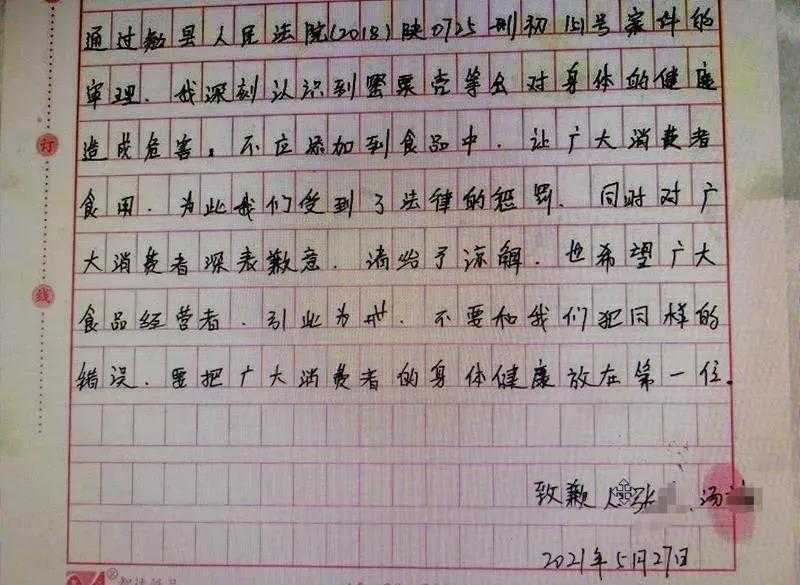 通过勉县人民法院(2018)陕0725刑初151号案件的
审理.我深刻认识到罂粟壳等会对身体的健康
造成危害,不应添加到食品中.让广大消费者
食用.为此我们受到了法律的惩罚.同时对广
大消费者深表歉意.请给予谅解.也希望广大
食品经营者.引此为戒.不要和我们犯同样的
错误.要把广大消费者的身体健康放在第一位。
致歉人 张 、汤
2021年5月27日
订
线